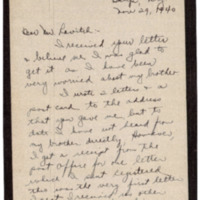 Nov 29, 1940
Dear Mr. Ravitch:-
I received your letter
& believe me I was glad to
get it as I have been
very worried about my brother
I wrote 2 letters & a
post card to the address
that you gave me but to
date I have not heard from
my brother directly. However,
I got a receipt from the
post office for one letter
which I sent registered
this was the very first letter